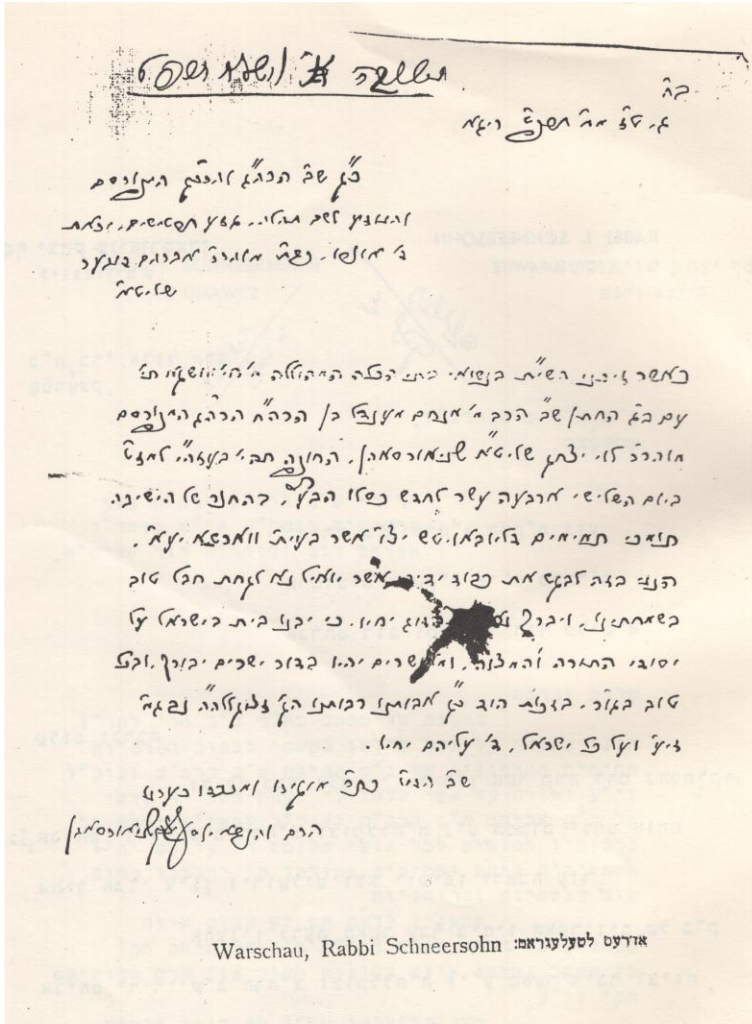 ב"ה
ג', ט"ז מ"ח תרפ"ט ריגא
כ"ג ש"ב הרה"ג והרה"ג המפורסם
והנודע לשם תהלה, גזע תרשישים, יראת
ד' אוצרו, כש"ת מוהר"ר אברהם דובער
שליט"א
כאשר זיכני השי"ת בנשואי בתי הכלה המהוללה מ' חי' מושקא תי'
עם ב"ג החתן ש"ב הרב מ' מנחם מענדל בן הרה"ח הרה"ג המפורסם
מוהר"ר לוי יצחק שליט"א שניאורסאהן, החופה תהי' בעזה"י למז"ט
ביום השלישי ארבעה עשר לחדש כסלו הבע"ל, בהחצר של הישיבה
תומכי תמימים דליובאוויטש יצ"ו אשר בעי"ת ווארשא יע"א,
הנני בזה לבקש את כבוד ידידי אשר יואיל נא לקחת חבל טוב
בשמחתינו, ויברך הזוג יחיו, כי יבנו בית בישראל על
יסודי התורה והמצוה, ומאושרים יהיו בדור ישרים יבורך, ובכל
טוב בגו"ר, בזכות הוד כ"ק אבותינו רבותינו הק' זצוקללה"ה נבג"מ
זי"ע ועל כל ישראל, ד' עליהם יחיו.
ש"ב הדו"ש מוקירו ומכבדו כערכו
הרם והנשא יוסף יצחק שניאורסאהן
Warschau, Rabbi Schneersohn אדרעס לטעלעגראם: